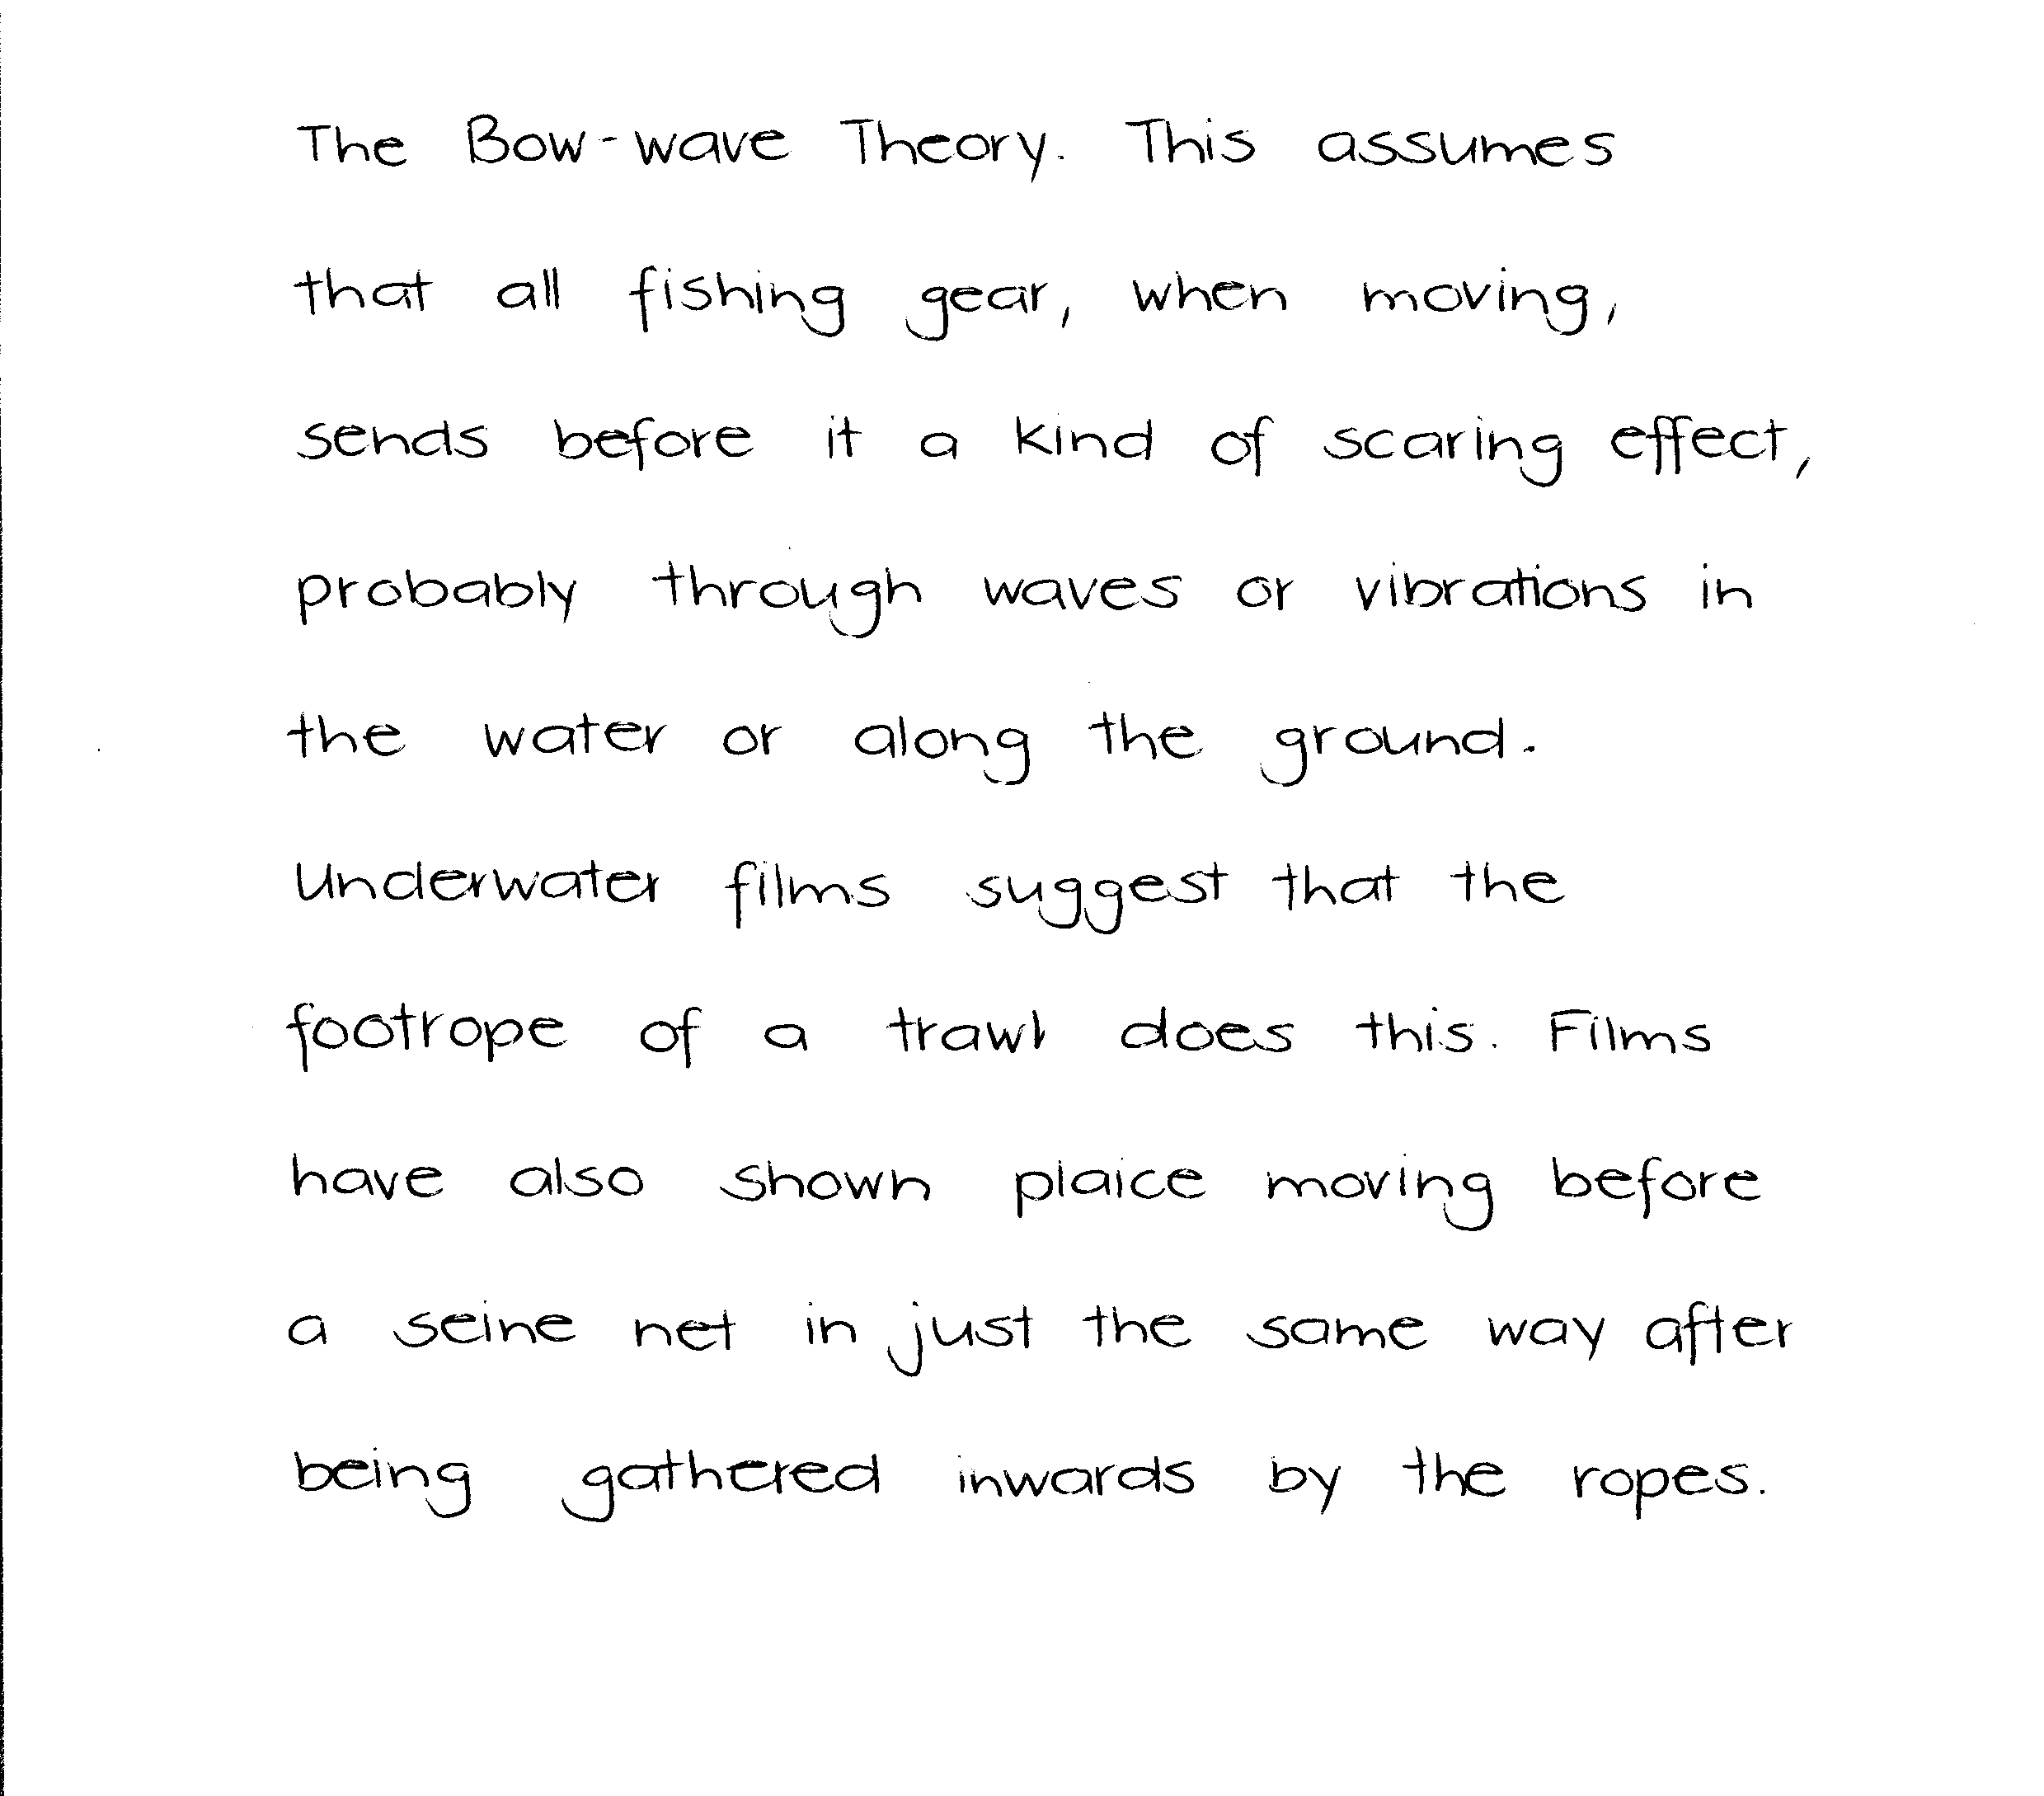 The Bow-wave Theory. This assumes
that all fishing gear, when moving,
sends before it a kind of scaring effect,
probably through waves or vibrations in
the water or along the ground.
Underwater films suggest that the
footrope of a trawl does this. Films
have also shown plaice moving before
a seine net in just the same way after
being gathered inwards by the ropes.